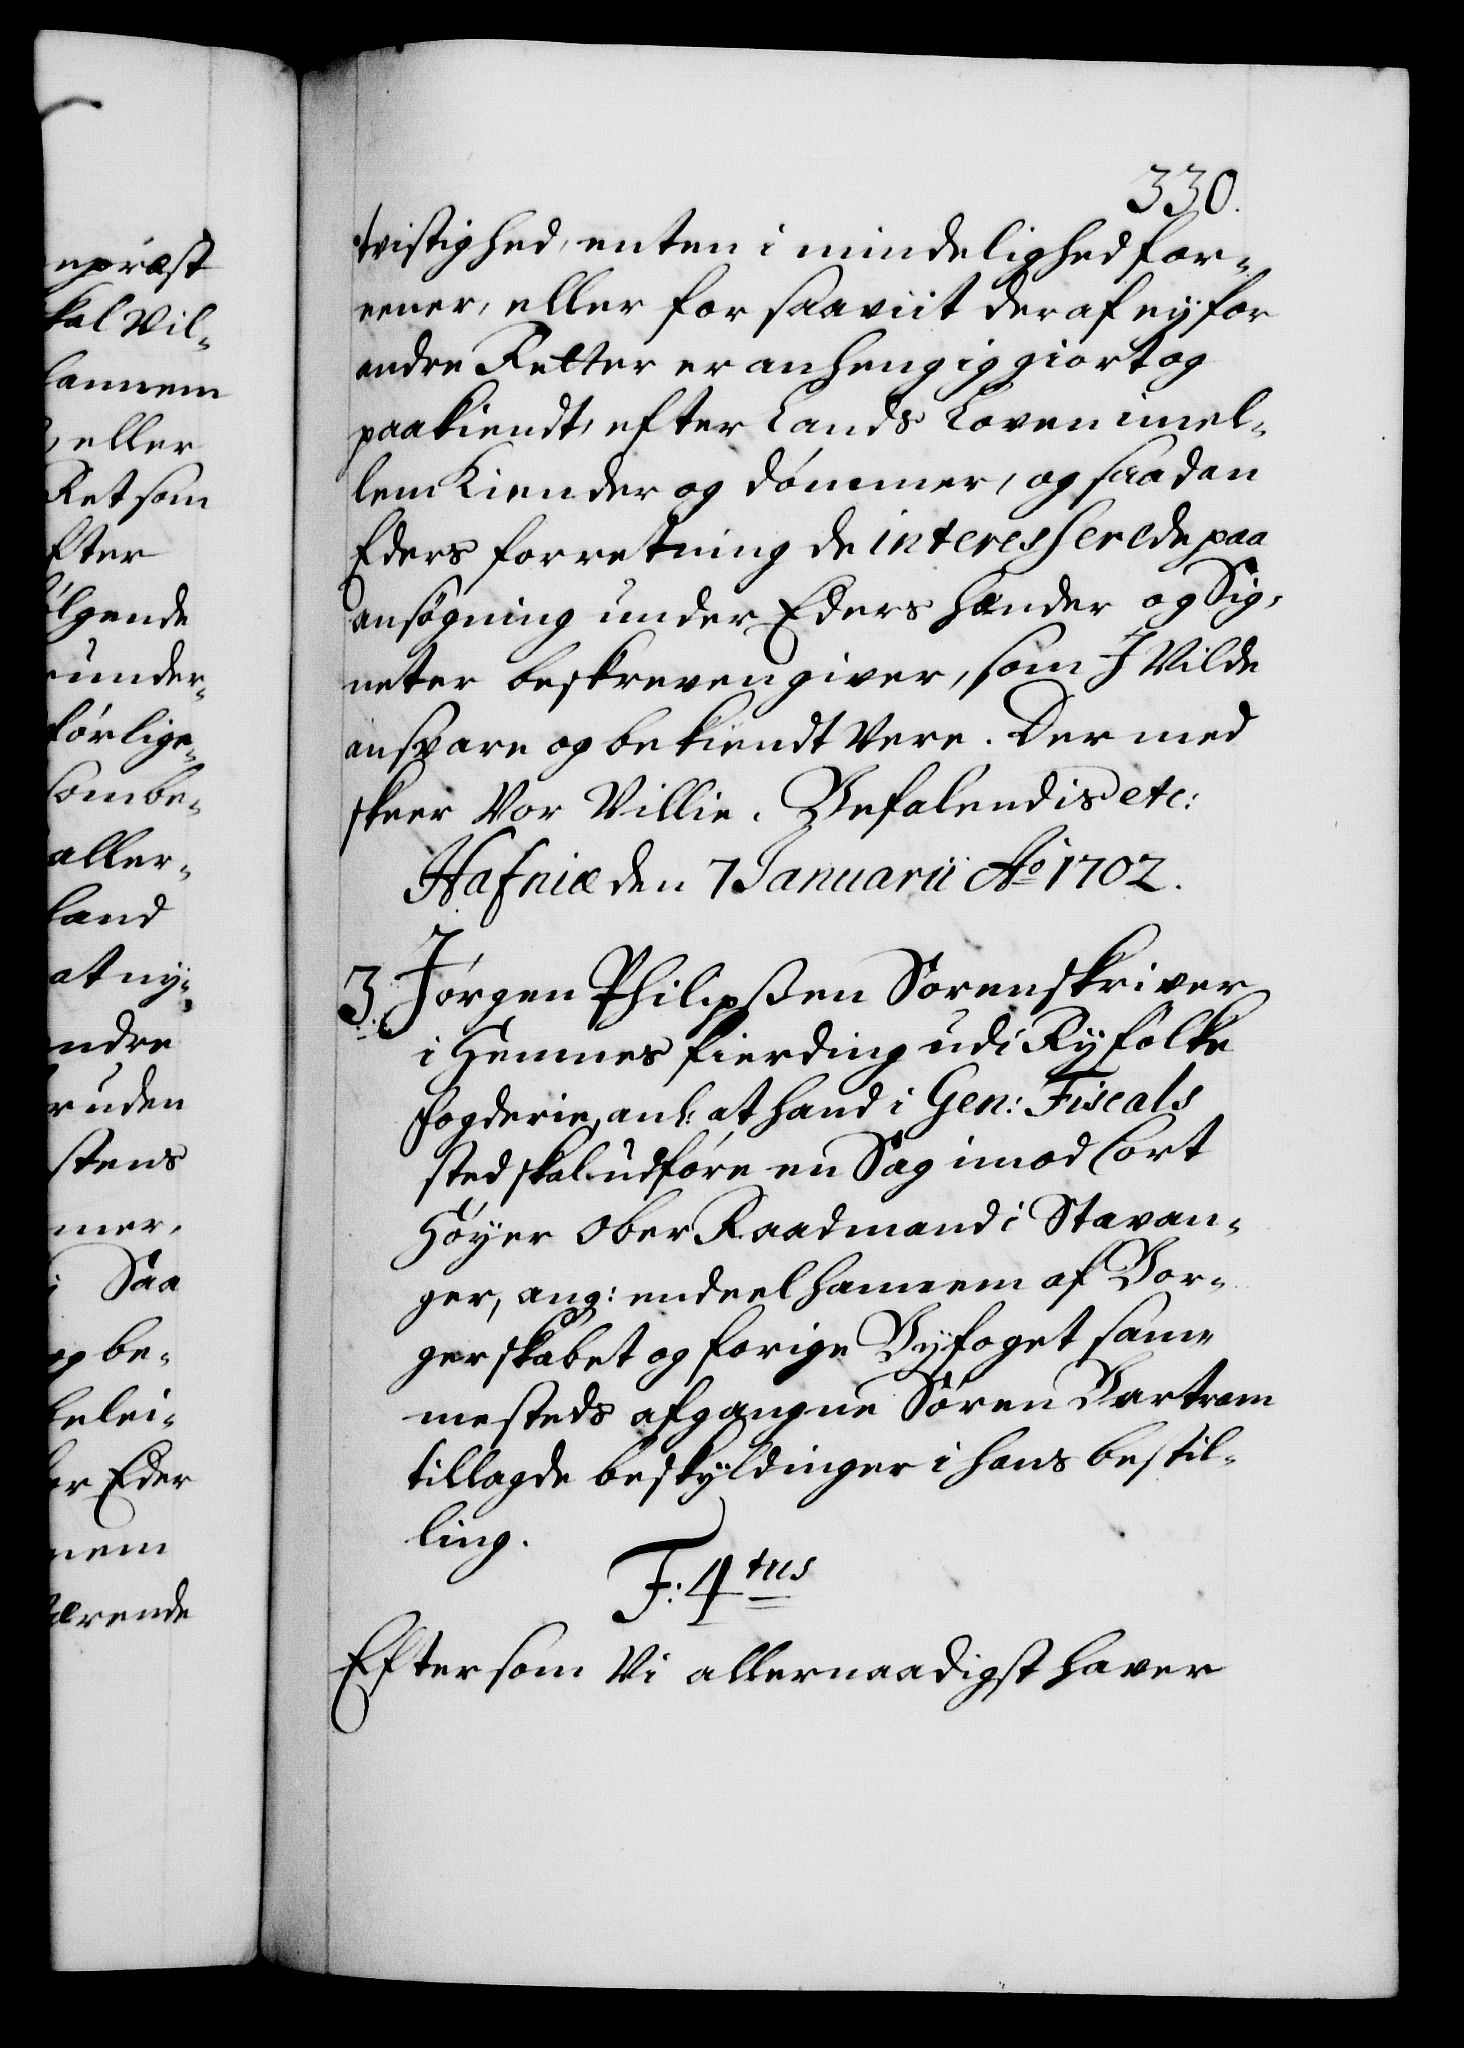 330.
tvistighed, enten i mindelighed for-
eener, eller for saaviit deraf ey for
andre Retter er anhengiggiort og
paakiendt, efter Lands Loven imel-
lem Kiender og dømmer, og saadan
Eders forretning de interesserede paa
ansøgning under Eders hænder og Sig-
neter beskreven giver, som I Vilde
ansvare og bekiendt Vere. Der med
skeer Vor Villie. Befalendis etc:
Hafniæ den 7 Januarii Ao 1702.
3. Jørgen Philipssen Sorenskriver
i Hemnes fierding udi Ryfölke
fogderie, anl: at hand i Gen: Fiscals
sted skal udføre en Sag imod Cort
Höyer Ober Raadmand i Stavan-
ger, ang: endeel hannem af Bor-
gerskabet og forige Byfoget sam-
mesteds afgangne Sören Bartram
tillagde beskyldinger i hans bestil-
ling.
F: 4tus
Eftersom Vi allernaadigst haver
epræst
kal Vil-
hannem
eller
Ret som
fter
ølgende
under-
førlige-
som be-
aller-
land
at ny-
ndre
r uden
stens
mer,
Saa
og be-
belei-
er Eder
nem
ærende